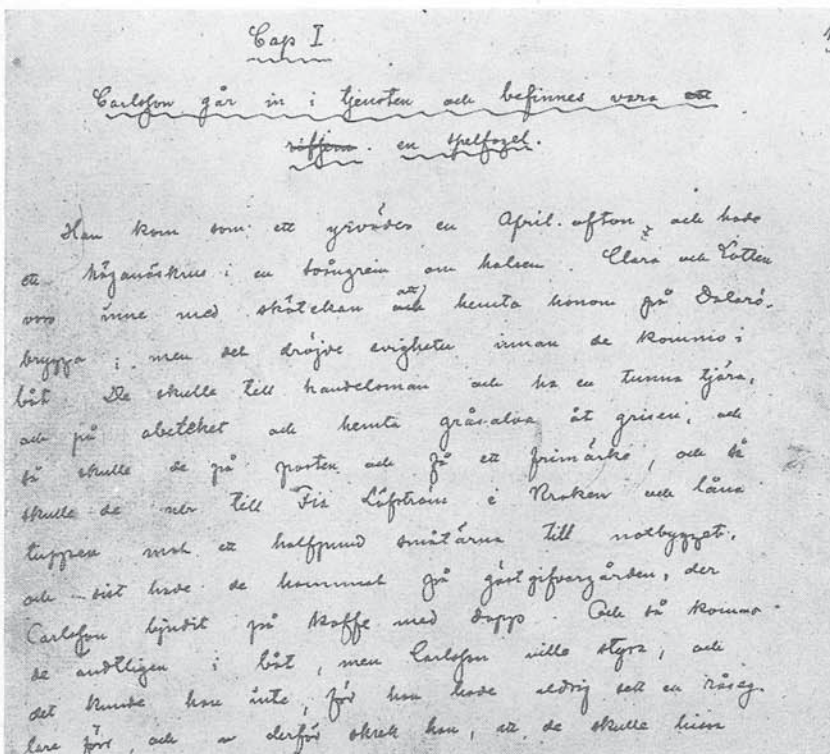 Cap I
Carlsson går in i tjensten och befinnes vara ett
en spelfogel.
Han kom som ett yrväder en April-afton, och hade
ett höganäskrus i en svångrem om halsen. Clara och Lotten
voro inne med skötekan att hemta honom på Dalarö-
brygga; men det dröjde evigheter innan de kommo i
båt. De skulle till handelsman och ha en tunna tjära,
och på abeteket och hemta gråsalva åt grisen, och
så skulle de på posten och få ett frimärke, och så
skulle de ner till Fia Löfström i Kroken och låna
tuppen mot ett halfpund småtärna till notbygget,
och sist hade de hamnat på gästgifvargården, der
Carlsson bjudit på kaffe med dopp. Och så kommo
de ändtligen i båt, men Carlsson ville styra, och
det kunde han inte, för han hade aldrig sett en råseg-
lare förr, och derför skrek han, att de skulle hissa